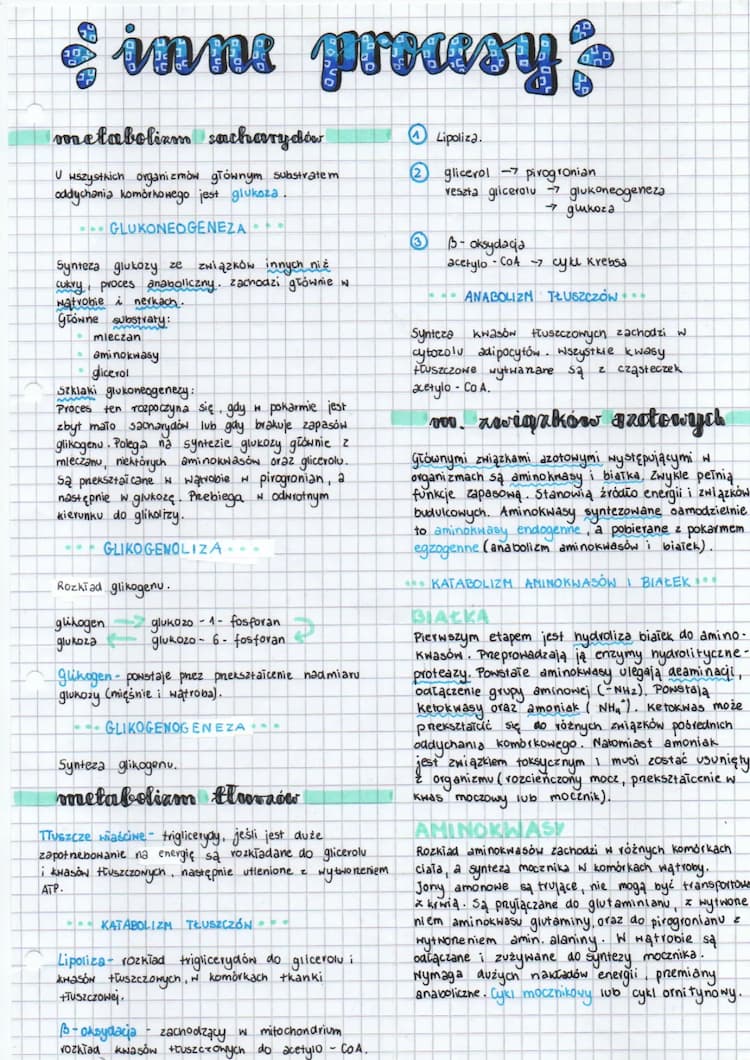 inne procesy
metabolizm sacharydów
U wszystkich organizmów głównym substratem
oddychania komórkowego jest glukoza.
GLUKONEOGENEZA
Synteza glukozy ze związków innych niż
cukry, proces anaboliczny. Zachodzi głównie w
wątrobie i nerkach.
Główne substraty:
mleczan
aminokwasy
glicerol
Szklaki glukoneogenezy:
Proces ten rozpoczyna się, gdy w pokarmie jest
zbyt mało sacharydów lub gdy brakuje zapasów
glikogenu. Polega na syntezie glukozy głównie z
mleczanu, niektórych aminokwasów oraz glicerolu.
Są przekształcane w wątrobie w pirogronian, a
następnie w glukozę. Przebiega w odwrotnym
kierunku do glikolizy.
GLIKOGENOLIZA
Rozkład glikogenu.
glikogen → glukozo-1-fosforan
glukoza ← glukozo-6-fosforan
Glikogen - powstaje przez przekształcenie nadmiaru
glukozy (mięśnie i wątroba).
GLIKOGENOGENEZA
Synteza glikogenu.
metabolizm tłuszczów
Tłuszcze właściwe - triglicerydy, jeśli jest duże
zapotrzebowanie na energię są rozkładane do glicerolu
i kwasów tłuszczowych, następnie utlenione z wytworzeniem
ATP.
KATABOLIZM TŁUSZCZÓW
Lipoliza - rozkład triglicerydów do glicerolu i
kwasów tłuszczowych, w komórkach tkanki
tłuszczowej.
β-oksydacja - zachodzący w mitochondrium
rozkład kwasów tłuszczowych do acetylo-CoA.
1 Lipoliza.
2 glicerol → pirogronian
reszta glicerolu → glukoneogeneza
→ glukoza
3 β-oksydacja
acetylo-CoA → cykl Krebsa
ANABOLIZM TŁUSZCZÓW
Synteza kwasów tłuszczowych zachodzi w
cytozolu adipocytów. Wszystkie kwasy
tłuszczowe wytwarzane są z cząsteczek
acetylo-CoA.
m. związków azotowych
Głównymi związkami azotowymi występującymi w
organizmach są aminokwasy i białka. Zwykle pełnią
funkcje zapasową. Stanowią źródło energii i związków
budulcowych. Aminokwasy syntezowane samodzielnie
to aminokwasy endogenne, a pobierane z pokarmem
egzogenne (anabolizm aminokwasów i białek).
KATABOLIZM AMINOKWASÓW I BIAŁEK
BIAŁKA
Pierwszym etapem jest hydroliza białek do amino-
kwasów. Przeprowadzają ją enzymy hydrolityczne-
proteazy. Powstałe aminokwasy ulegają deaminacji,
odłączenie grupy aminowej (-NH2). Powstają
ketokwasy oraz amoniak (NH4+). Ketokwas może
przekształcić się do różnych związków pośrednich
oddychania komórkowego. Natomiast amoniak
jest związkiem toksycznym i musi zostać usunięty
z organizmu (rozcieńczony mocz, przekształcenie w
kwas moczowy lub mocznik).
AMINOKWASY
Rozkład aminokwasów zachodzi w różnych komórkach
ciała, a synteza mocznika w komórkach wątroby.
Jony amonowe są trujące, nie mogą być transportow
z krwią. Są przyłączane do glutaminianu, z wytworze
niem aminokwasu glutaminy, oraz do pirogronianu z
wytworzeniem amin. alaniny. W wątrobie są
odłączane i zużywane do syntezy mocznika.
Wymaga dużych nakładów energii, przemiany
anaboliczne. Cykl mocznikowy lub cykl ornitynowy.